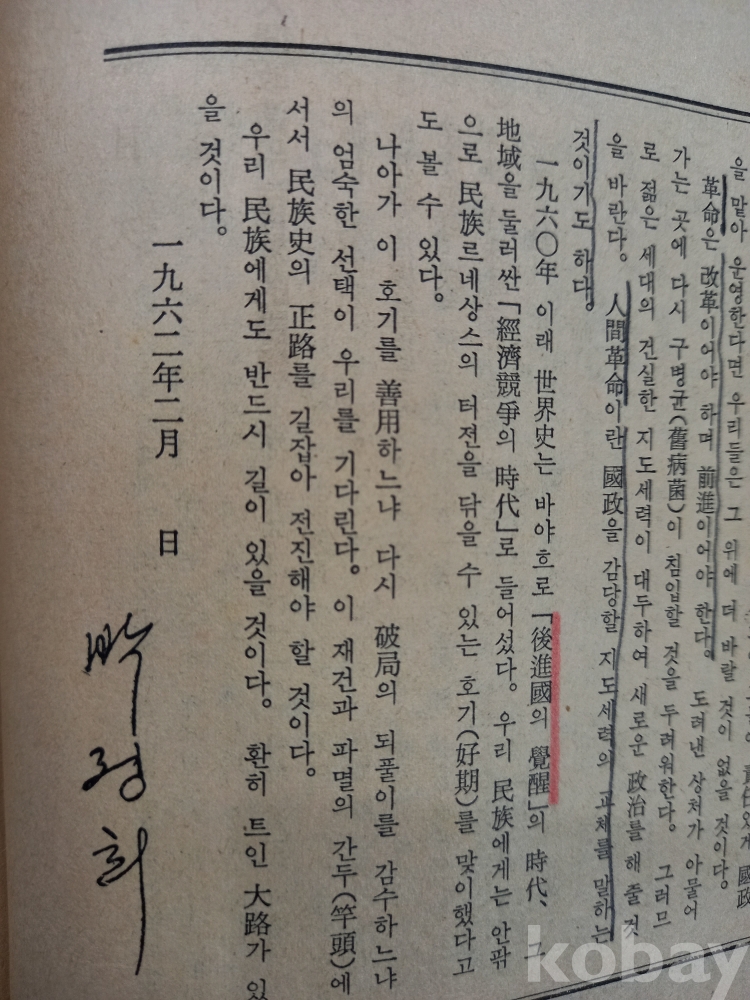 責任있게 國政
을 맡아 운영한다면 우리들은 그 위에 더 바랄 것이 없을 것이다.
革命은 改革이어야 하며 前進이어야 한다. 도려낸 상처가 아물어
가는 곳에 다시 구병균(舊病菌)이 침입할 것을 두려워한다. 그러므
로 젊은 세대의 건실한 지도세력이 대두하여 새로운 政治를 해 줄것
을 바란다. 人間革命이란 國政을 감당할 지도세력의 교체를 말하는
것이기도 하다.
一九六〇年 이래 世界史는 바야흐로 「後進國의 覺醒」의 時代, 그
地域을 둘러싼 「經濟競爭의 時代」로 들어섰다. 우리 民族에게는 안팎
으로 民族르네상스의 터전을 닦을 수 있는 호기(好期)를 맞이했다고
도 볼 수 있다.
나아가 이 호기를 善用하느냐 다시 破局의 되풀이를 감수하느냐
의 엄숙한 선택이 우리를 기다린다. 이 재건과 파멸의 간두(竿頭)에
서서 民族史의 正路를 길잡아 전진해야 할 것이다.
우리 民族에게도 반드시 길이 있을 것이다. 환히 트인 大路가 있
을 것이다.
一九六二年二月 日
박정희
kobay